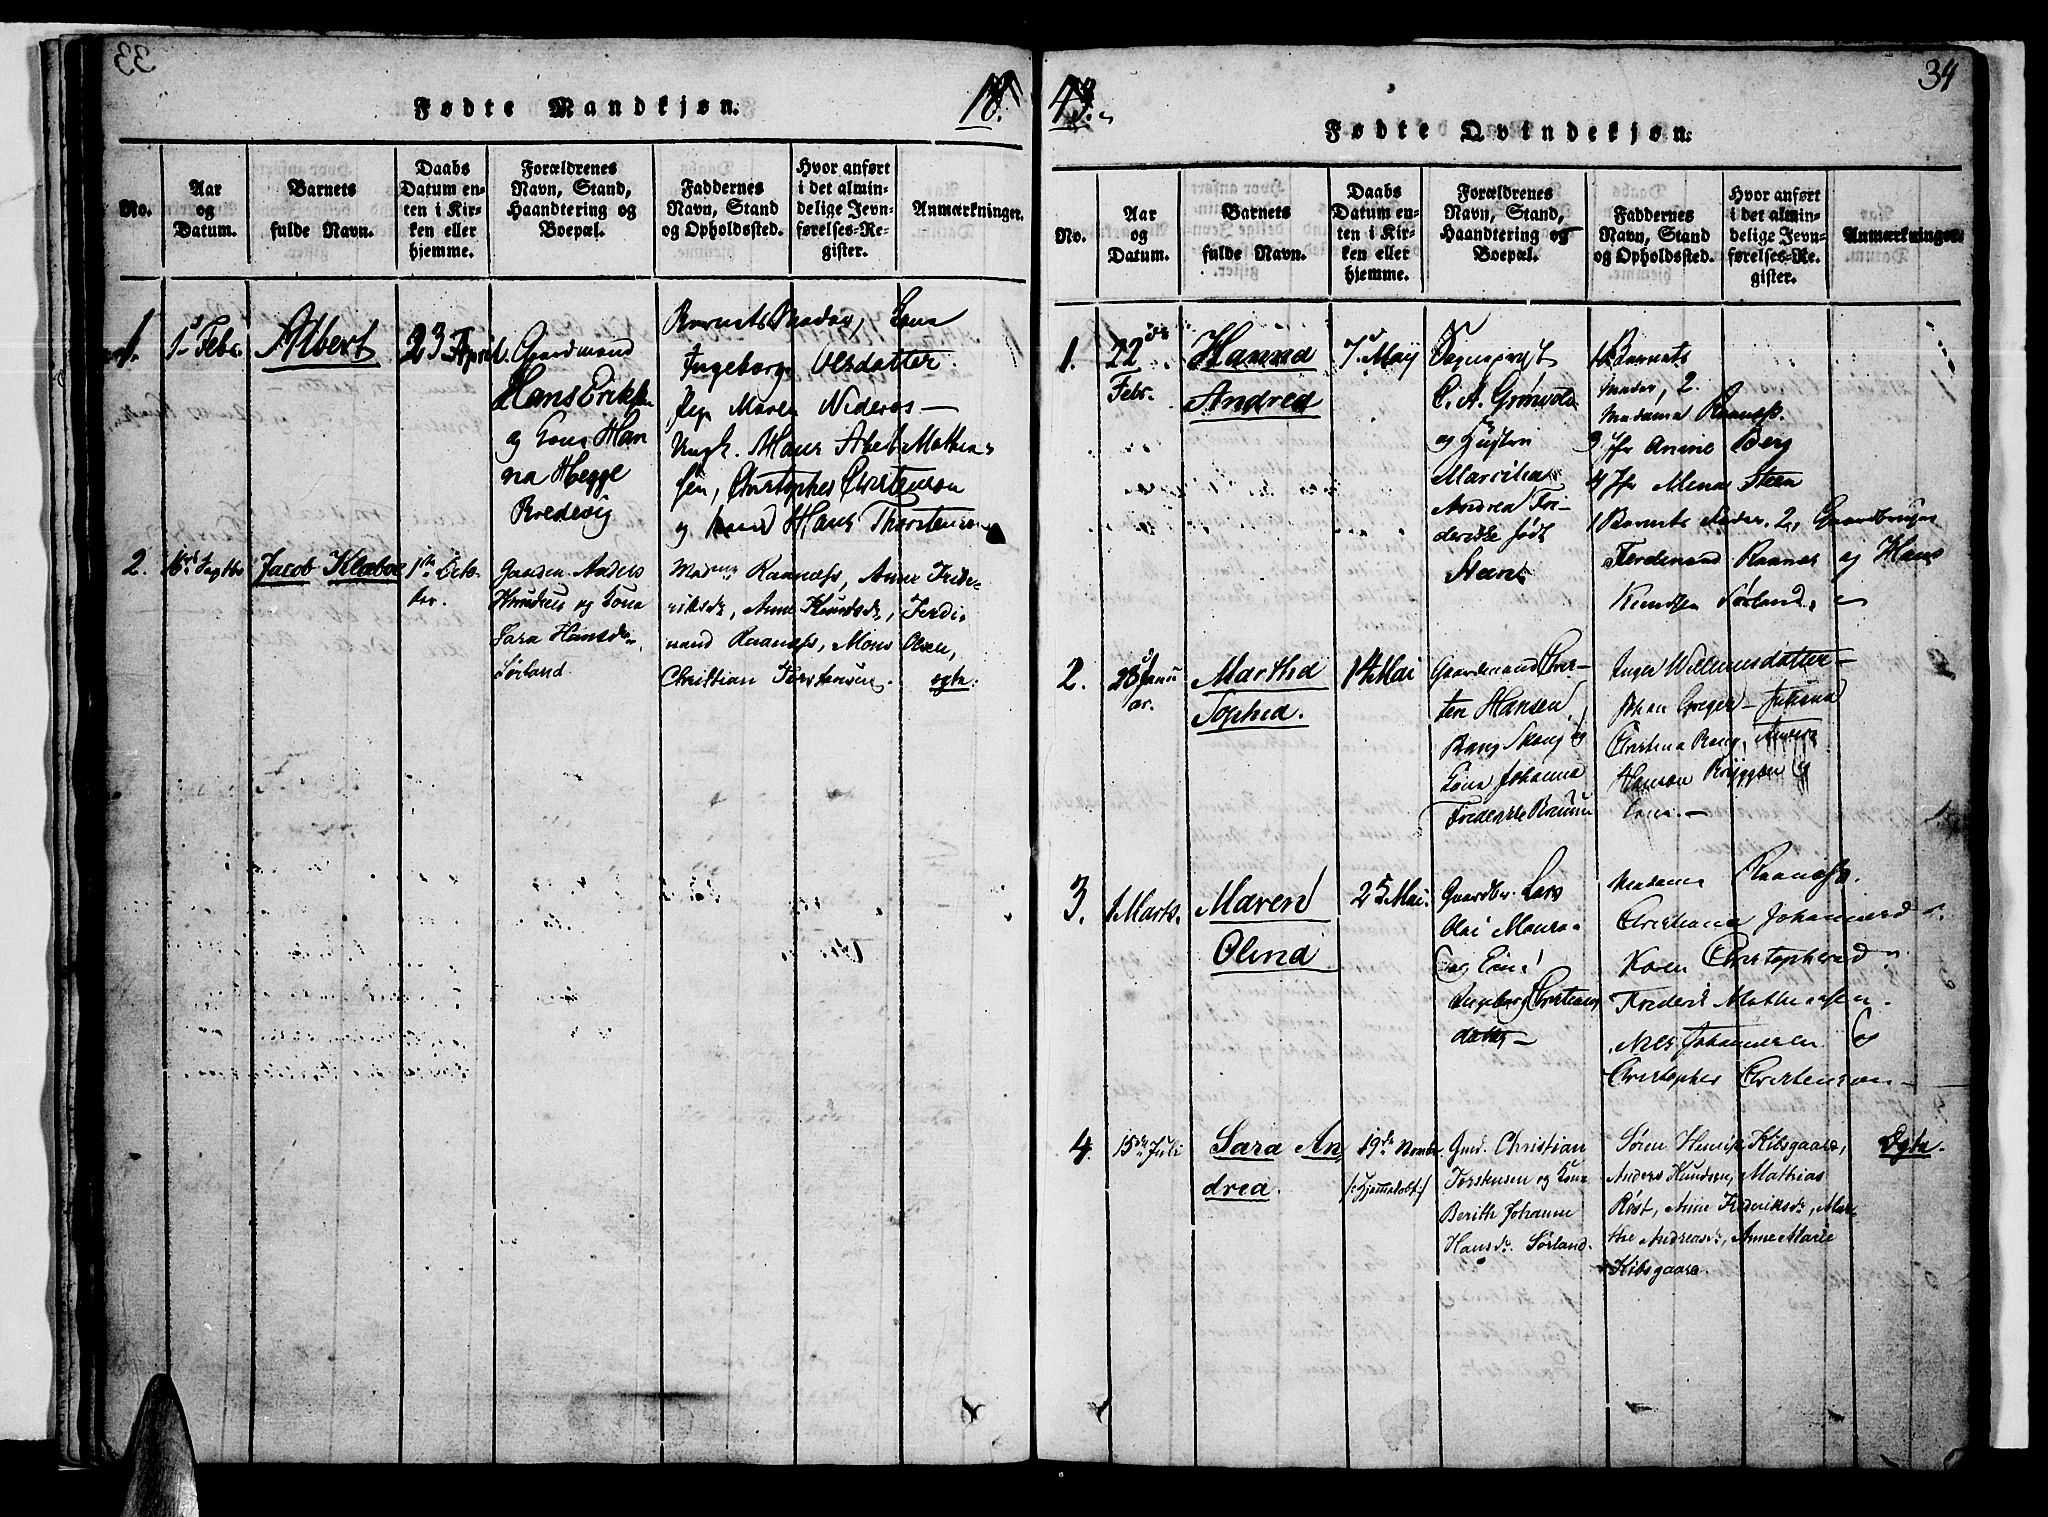 33
Fødte Mandkjøn.
18
No.
Aar
og
Datum.
Barnets
fulde Navn.
Daabs
Datum en-
ten i Kir-
ken eller
hjemme.
Forældrenes
Navn, Stand,
Haandtering og
Boepæl.
Faddernes
Navn, Stand
og Opholdssted.
Hvor anført
i det almin-
delige Jevn-
førelses-Re-
gister.
Anmærkninger.
1.
1 Febr.
Albert
23 April
Gaardmand
Hans Eriksen
og Kone Han
na Hegge
Bredevig
Barnets Moder, Kone
Ingeborg Olsdatter.
Pige Maren Nideros
Ungk. Hans Abel Mathia-
sen, Christopher Christensen
og Hans Thorstensen
2.
16de Septbr
Jacob Klæboe
1ste Octo-
ber.
Gaardm. Anders
Knudsen og Kone
Sara Hansdr.
Sørland
Madme Raanæss, Anne Fride-
riksdr, Anne Knudsdr, Ferdi-
nand Raanæss, Mons Olsen,
Christian Torstensen.
ægte.
34
43.
Fødte Qvindekjøn.
No.
Aar
og
Datum.
Barnets
fulde Navn.
Daabs
Datum en-
ten i Kir-
ken eller
hjemme.
Forældrenes
Navn, Stand,
Haandtering og
Boepæl.
Faddernes
Navn, Stand
og Opholdssted.
Hvor anført
i det almin-
delige Jevn-
førelses-Re-
gister.
Anmærkninger.
1.
22de
Febr.
Hanna
Andrea
7 Maij
Sognepræst
C. A. Grønvold
og Hustru
Marcilia
Andrea Fri-
derikke født
Steen
1 Barnets
Moder, 2.
Madame Raanæss.
3 Jfr Annne Berg
4 Jfr Mena Steen
1 Barnets Fader, 2, Gaardbruger
Ferdinand Raanæs og Hans
Knudsen Sørland.
2.
28 Janu
ar.
Martha
Sophia.
14 Mai
Gaardmand Chris-
ten Hansen
Bang Skong og
Kone Johanna
Frederikke
Inger Willumsdatter
Johan Greger Juliana
Christina Bang,
Hanson Bryggen og
Kone.
3.
1 Marts.
Maren
Olina
25 Mai.
Gaardbr. Lars
Olai
og Kone
Ingeborg Christians
datter
Madame Raanæss.
Christiana Johannesd r.
Karen Christopherd r.
Frederik Mathiassen.
Niels Johannesen og
Christopher Christenson
4.
15de Juli
Sara An
drea.
19de Novbr.
/:hjemmedøbt:/
Gmd. Christian
Torstensen og Kone
Berith Johanne
Hansdr. Sørland.
Sønne Henrik Kibsgaard,
Anders Knudsen, Mathias
Røst, Anne Frederiksdr, Mar-
the Andreasdr, Anne Marie
Kibsgaard.
Ægte.